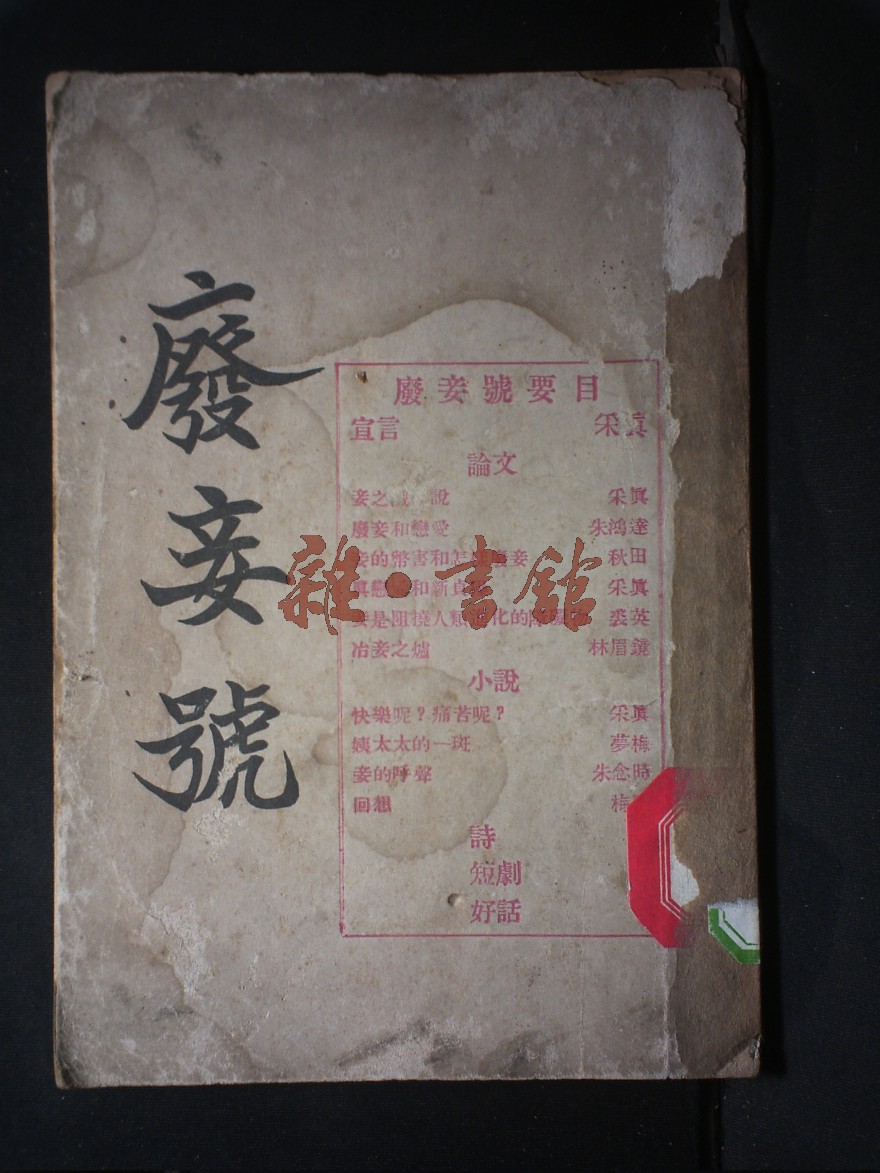 廢妾號
廢妾號要目
宣言 采真
論文
妾之 說 采眞
廢妾和戀愛 朱鴻達
妾的幣害和怎 廢妾 秋田
眞戀 和新貞 采眞
妾是阻撓人類 化的障 裘英
冶妾之爐 林眉鏡
小說
快樂呢？痛苦呢？ 采眞
姨太太的一斑 夢梅
妾的呼聲 朱念時
回想 梅
詩
短劇
好話
雜・書館